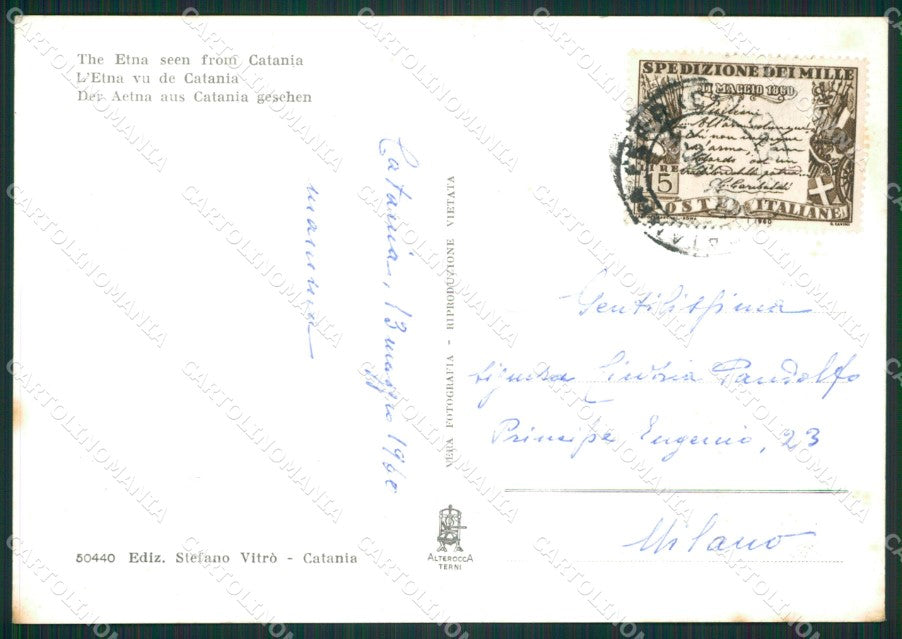 The Etna seen from Catania
L'Etna vu de Catania
Der Aetna aus Catania gesehen
Catania, 13 maggio 1960
mamma
VERA FOTOGRAFIA - RIPRODUZIONE VIETATA
SPEDIZIONE DEI MILLE
11 MAGGIO 1860
G. Garibaldi
LIRE
15
POSTE ITALIANE
1960
Gentilissima
Signora Pandolfo
Principe Eugenio, 23
Milano
ALTEROCCA
TERNI
50440 Ediz. Stefano Vitrò - Catania
CARTOLINOMANIA